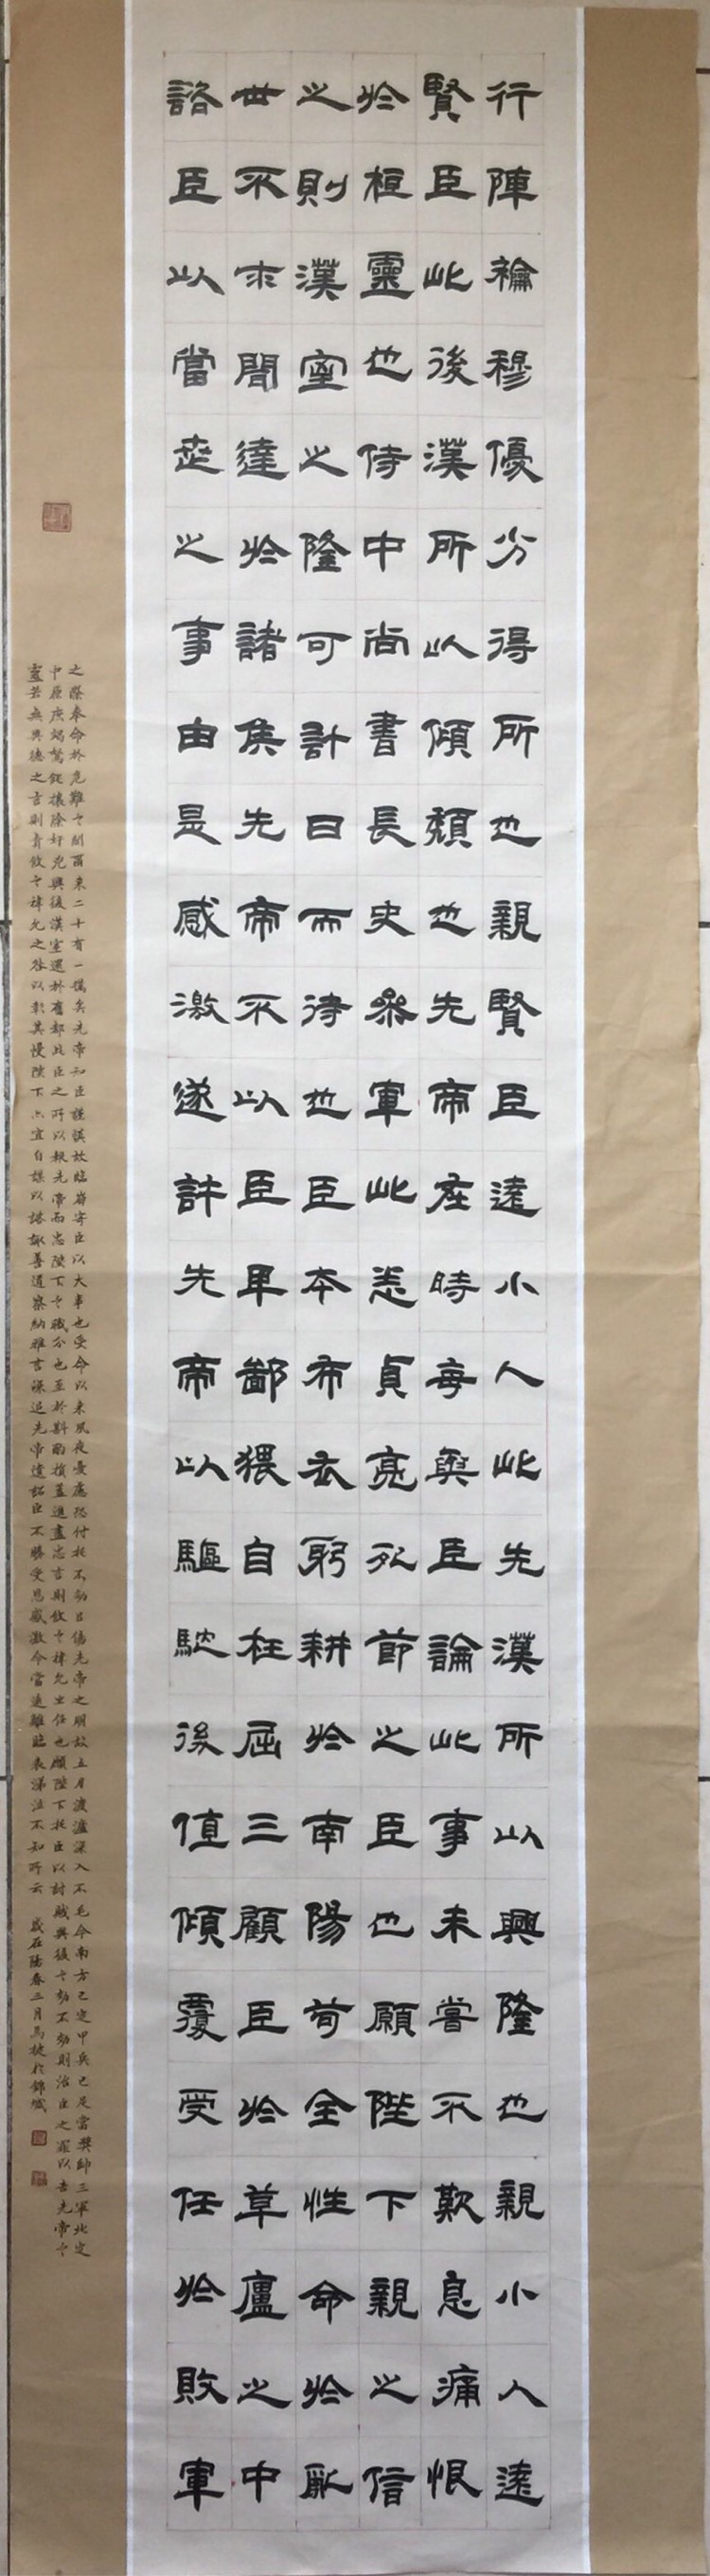 行陣龢穆優劣得所也親賢臣遠小人此先漢所以興隆也親小人遠
賢臣此後漢所以傾頹也先帝在時每與臣論此事未嘗不歎息痛恨
於桓靈也侍中尚書長史參軍此悉貞亮死節之臣也願陛下親之信
之則漢室之隆可計日而待也臣本布衣躬耕於南陽苟全性命於亂
世不求聞達於諸侯先帝不以臣卑鄙猥自枉屈三顧臣於草廬之中
諮臣以當世之事由是感激遂許先帝以驅馳後值傾覆受任於敗軍
之際奉命於危難之間爾來二十有一年矣先帝知臣謹慎故臨崩寄臣以大事也受命以來夙夜憂慮恐付托不効以傷先帝之明故五月渡瀘深入不毛今南方已定甲兵已足當獎帥三軍北定
中原庶竭駑鈍攘除奸兇興復漢室還於舊都此臣之所以報先帝而忠陛下之職分也至於斟酌損益進盡忠言則攸之禕允之任也願陛下托臣以討賊興復之効不効則治臣之罪以告先帝之
靈若無興德之言則責攸之禕允之咎以彰其慢陛下亦宜自謀以諮諏善道察納雅言深追先帝遺詔臣不勝受恩感激今當遠離臨表涕泣不知所云 歲在陽春三月馬於錦城